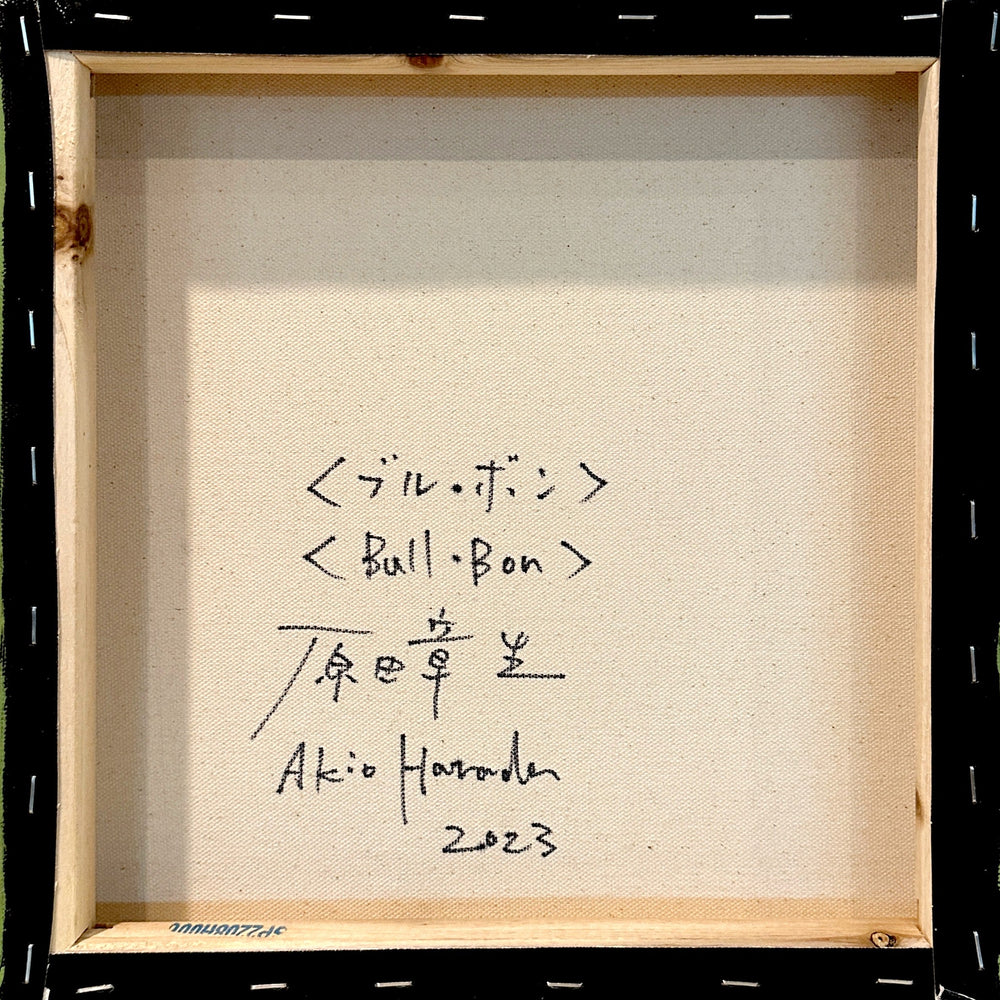 <ブル・ボン>
<Bull・Bon>
原田章生
Akio Harada
2023